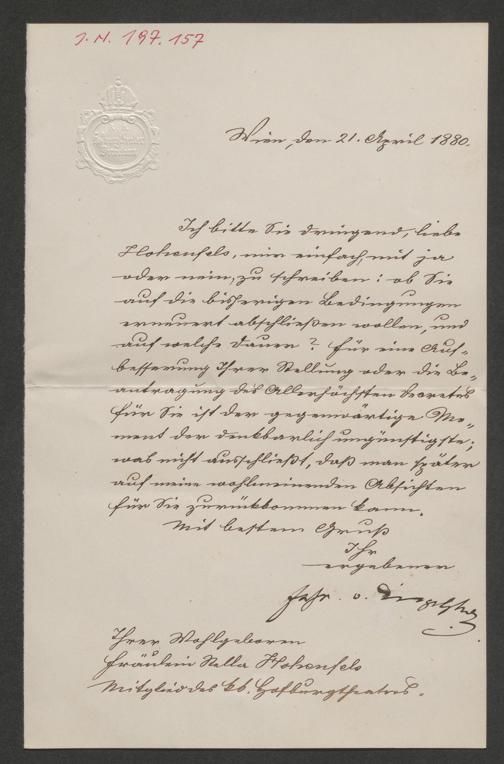 J. N. 197.157
Wien, den 21. April 1880.
Ich bitte Sie dringend, liebe
Hohenfels, mir einfach, mit ja
oder nein, zu schreiben: ob Sie
auf die bisherigen Bedingungen
erneuert abschließen wollen, und
auf welche Dauer? Für eine Auf-
besserung Ihrer Stellung oder die Be-
antragung des Allerhöchsten Decretes
für Sie ist der gegenwärtige Mo-
ment der denkbarlich ungünstigste;
was nicht ausschließt, daß man später
auf meine wohlmeinenden Absichten
für Sie zurückkommen kann.
Mit bestem Gruß
Ihr
ergebener
Frhr. v. Dingelstedt
Ihrer Wohlgeboren
Fräulein Stella Hohenfels
Mitglied des kk. Hofburgtheaters.